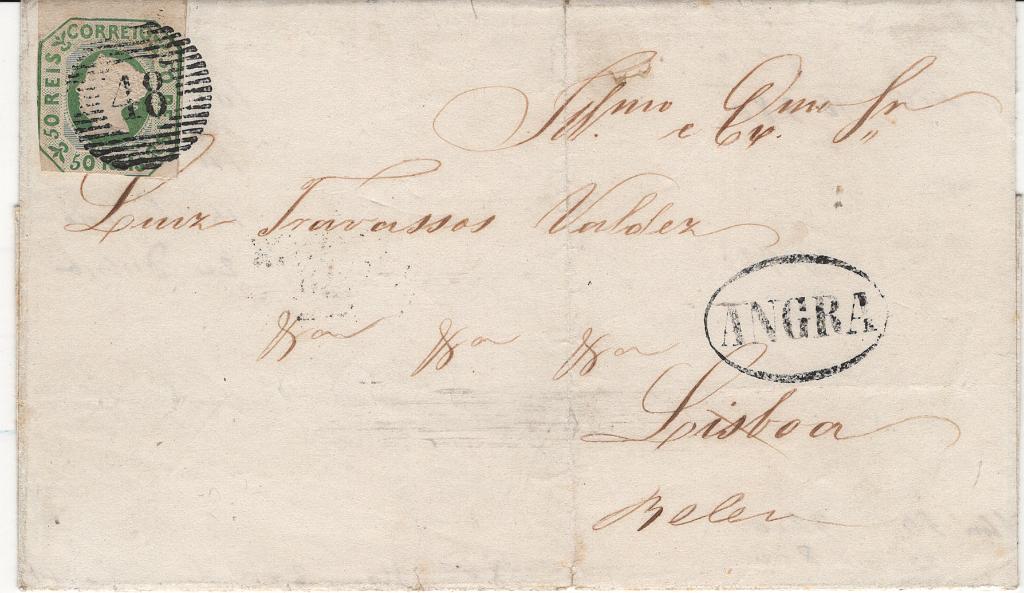 CORREIO
50 REIS
50 REIS
48
Illmo e Exmo Sr
Luiz Travassos Valdez
ANGRA
Lisboa
Belem